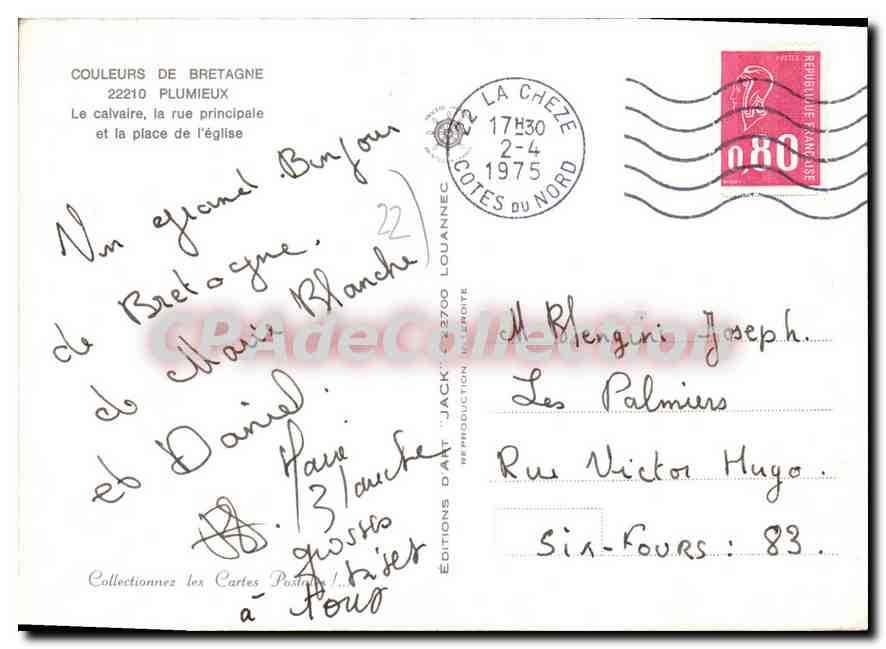 COULEURS DE BRETAGNE
22210 PLUMIEUX
Le calvaire, la rue principale
et la place de l'église
Un grand Bonjour
de Bretagne.
de Marie Blanche
et Daniel.
Marie
Blanche
grosses
à tous
22
Collectionnez les Cartes Postales !...
EDITIONS D'ART "JACK" - 22700 LOUANNEC
REPRODUCTION INTERDITE
22 LA CHEZE
17H30
2-4
1975
COTES DU NORD
POSTES
REPUBLIQUE FRANÇAISE
0,80
M Blengini Joseph.
Les Palmiers
Rue Victor Hugo.
SIX-FOURS : 83.
CPAdeCollection